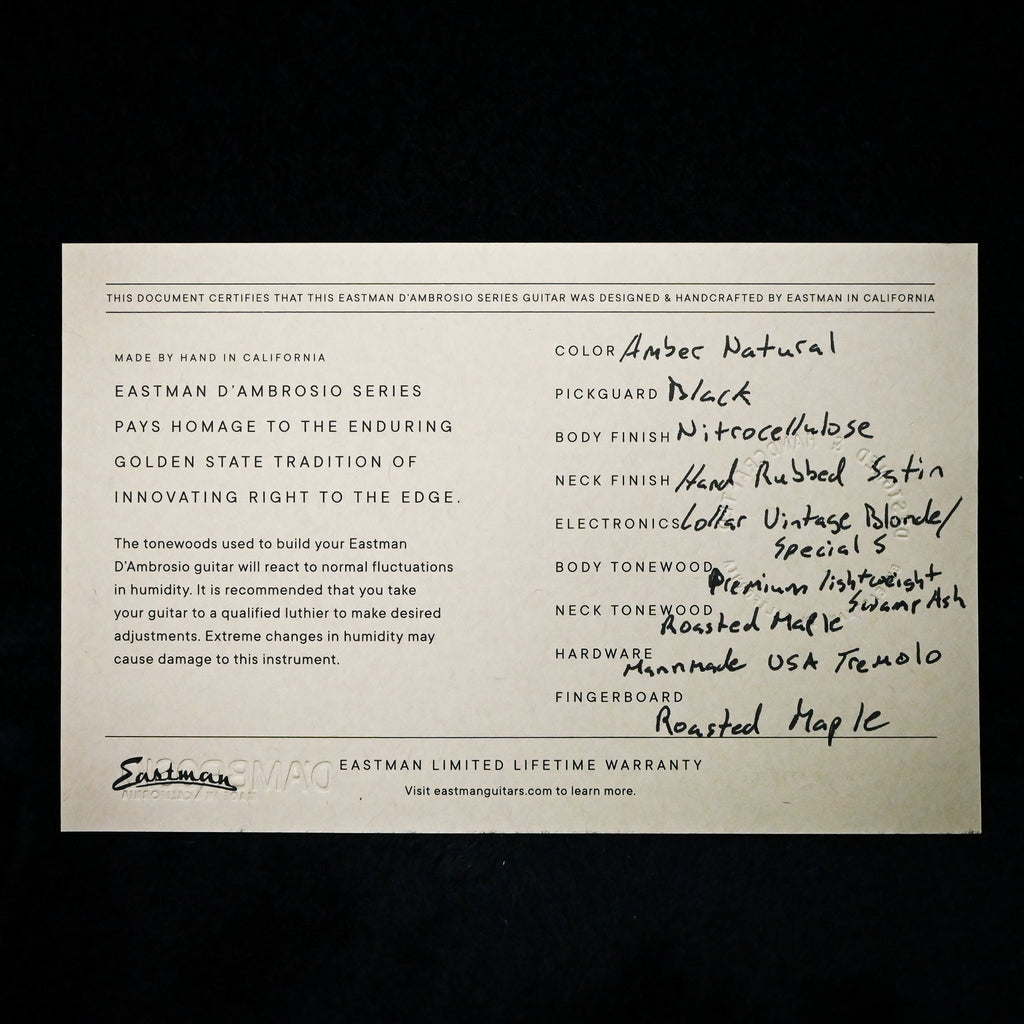 THIS DOCUMENT CERTIFIES THAT THIS EASTMAN D'AMBROSIO SERIES GUITAR WAS DESIGNED & HANDCRAFTED BY EASTMAN IN CALIFORNIA
MADE BY HAND IN CALIFORNIA
EASTMAN D'AMBROSIO SERIES
PAYS HOMAGE TO THE ENDURING
GOLDEN STATE TRADITION OF
INNOVATING RIGHT TO THE EDGE.
The tonewoods used to build your Eastman
D'Ambrosio guitar will react to normal fluctuations
in humidity. It is recommended that you take
your guitar to a qualified luthier to make desired
adjustments. Extreme changes in humidity may
cause damage to this instrument.
COLOR Amber Natural
PICKGUARD Black
BODY FINISH Nitrocellulose
NECK FINISH Hand Rubbed Satin
ELECTRONICS Lollar Vintage Blonde/
Special S
BODY TONEWOOD Premium lightweight
Swamp Ash
NECK TONEWOOD
Roasted Maple
HARDWARE
Mannmade USA Tremolo
FINGERBOARD
Roasted Maple
Eastman
EASTMAN LIMITED LIFETIME WARRANTY
Visit eastmanguitars.com to learn more.